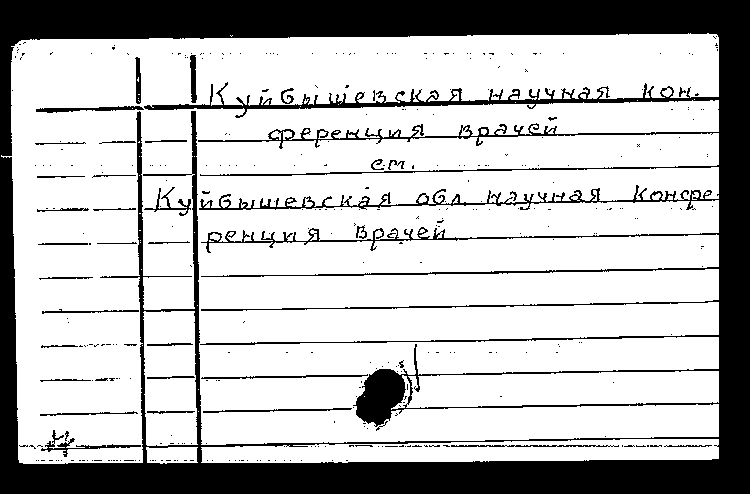 Куйбышевская научная кон.
ференция врачей
см.
Куйбышевская обл. научная конфе
ренция врачей